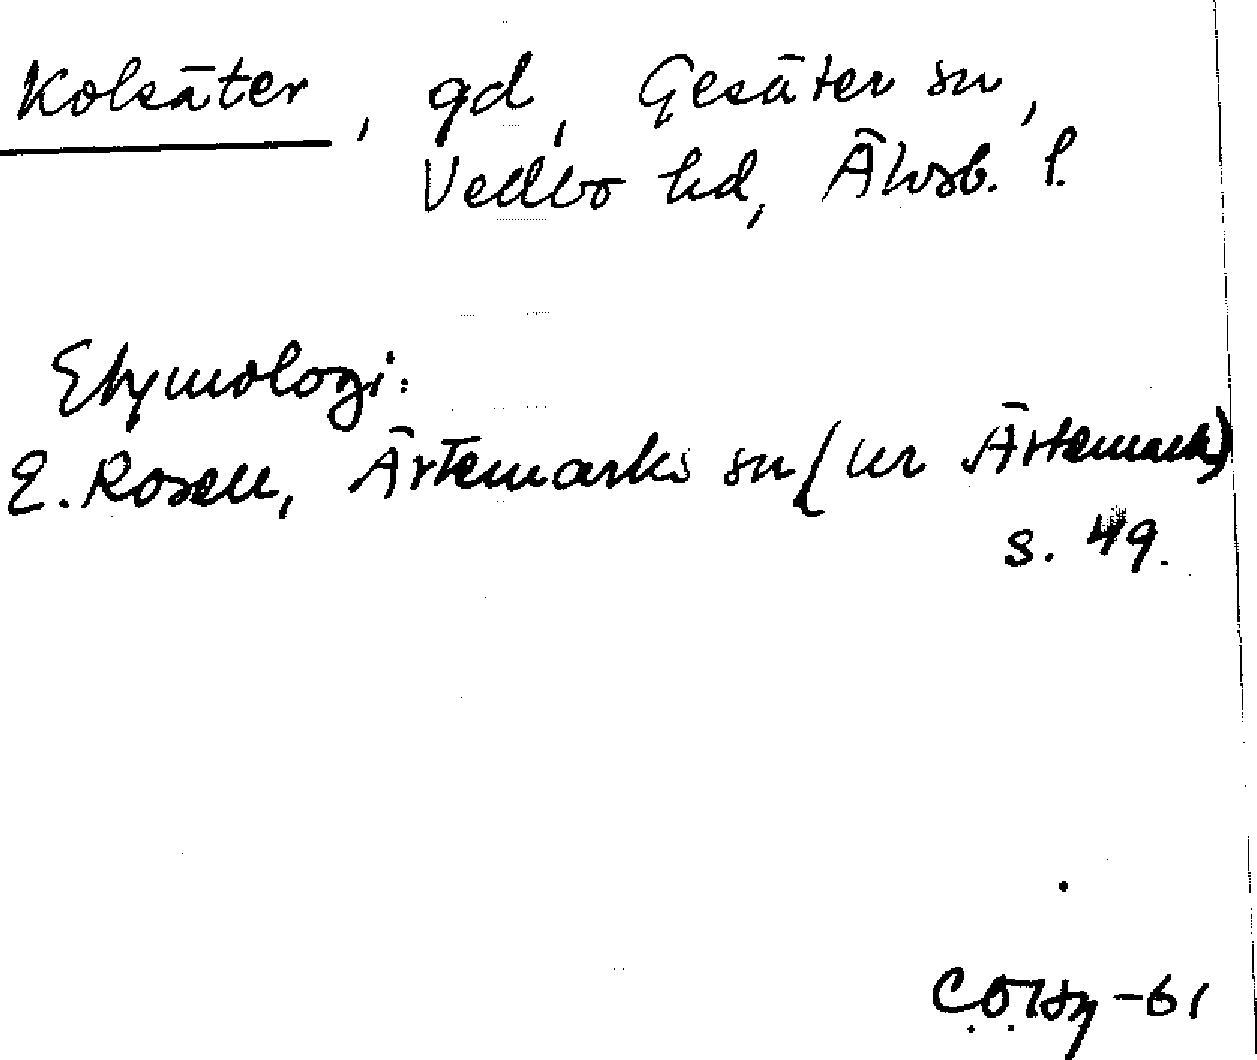 Kolsäter, gd, Gesäter sn,
Vedbo hd, Älvsb. l.
Etymologi:
E. Rosell, Ärtemarks sn (ur Ärtemark)
s. 49.
-61